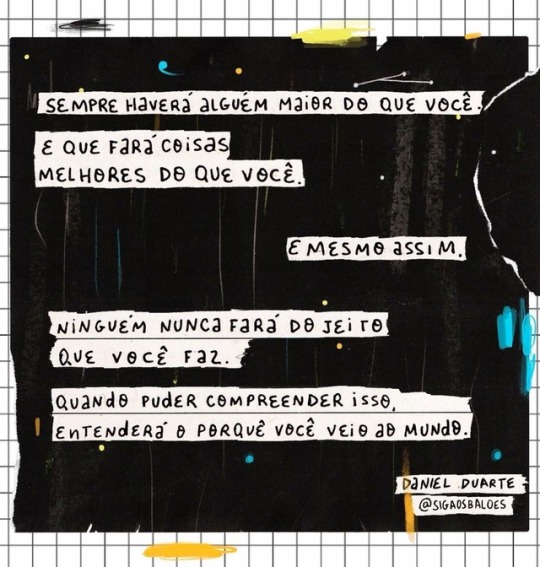 SEMPRE HAVERÁ ALGUÉM MAIOR DO QUE VOCÊ.
E QUE FARÁ COISAS
MELHORES DO QUE VOCÊ.
E MESMO ASSIM,
NINGUÉM NUNCA FARÁ DO JEITO
QUE VOCÊ FAZ.
QUANDO PUDER COMPREENDER ISSO,
ENTENDERÁ O PORQUÊ VOCÊ VEIO AO MUNDO.
DANIEL DUARTE
@SIGAOSBALOES